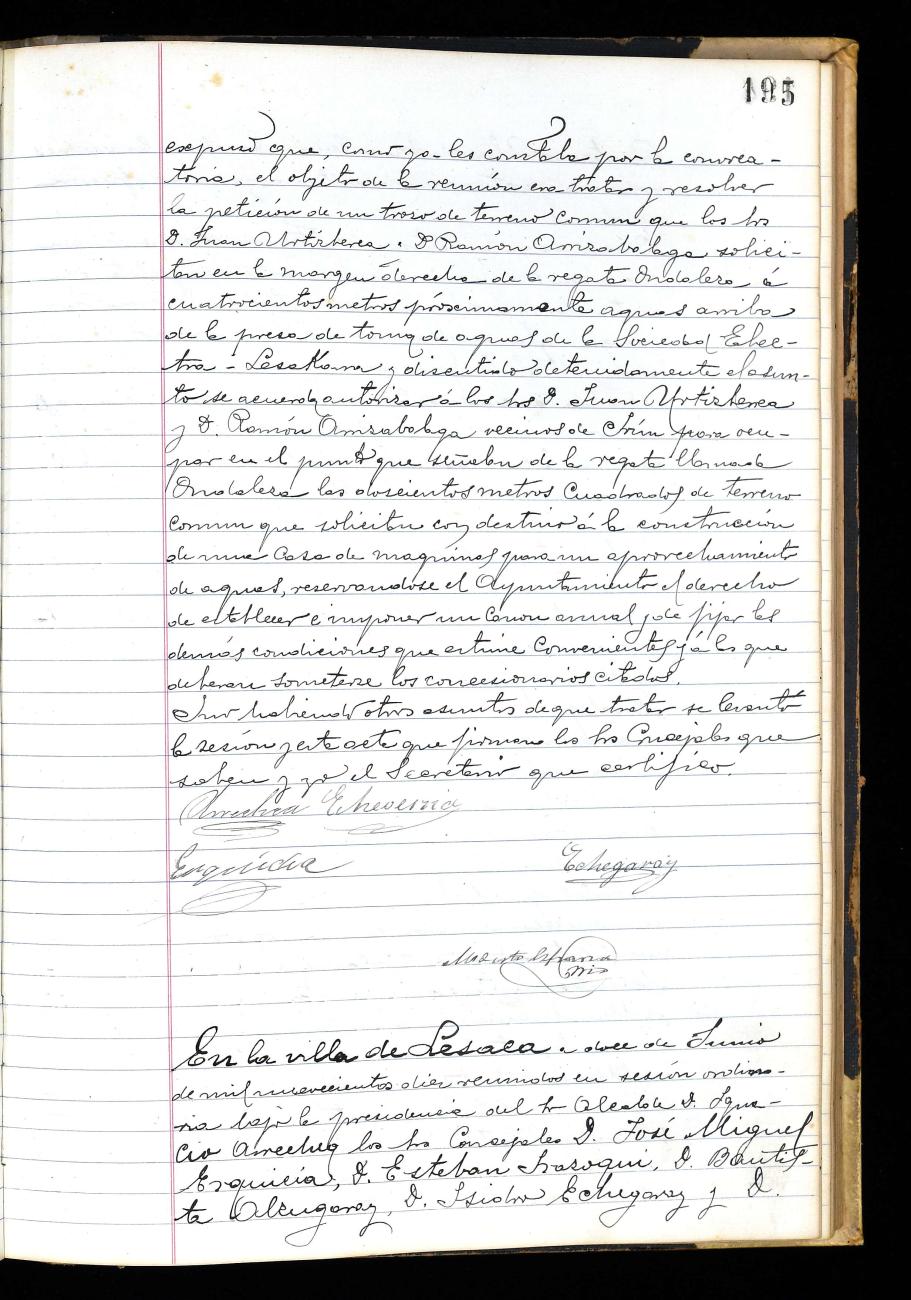 195
expuso que, como ya les constaba por la convoca-
toria, el objeto de la reunión era tratar y resolver
la petición de un trozo de terreno comun que los Srs
D. Juan Urtizberea y D Ramón Arrizabalaga solici-
tan en la margen derecha de la regata Ondalera á
cuatrocientos metros próximamente aguas arriba
de la presa de toma de aguas de la Sociedad Elec-
tra-Lesakana y discutido detenidamente el asun-
to se acuerda autorizar á los Srs D. Juan Urtizberea
y D. Ramón Arrizabalaga vecinos de Irún para ocu-
par en el punto que señalan de la regata llamada
Ondalera los doscientos metros cuadrados de terreno
comun que solicitan con destino á la construcción
de una casa de maquinas para un aprovechamiento
de aguas, reservandose el Ayuntamiento el derecho
de establecer é imponer un canon anual y de fijar las
demás condiciones que estime convenientes y á las que
deberan someterse los concesionarios citados.
Y no habiendo otros asuntos de que tratar se levantó
la sesión y esta acta que firman los Srs Concejales que
saben y yo el Secretario que certifico.
Arrechea Echeverria
Erquicia Echegaray
En la villa de Lesaca a doce de Junio
de mil nuevecientos diez reunidos en sesión ordina-
ria bajo la presidencia del Sr Alcalde D. Igna-
cio Arrechea los Srs Concejales D. José Miguel
Erquicia, D. Esteban Irazoqui, D. Bautis-
ta Alzugaray, D. Isidro Echegaray y D.